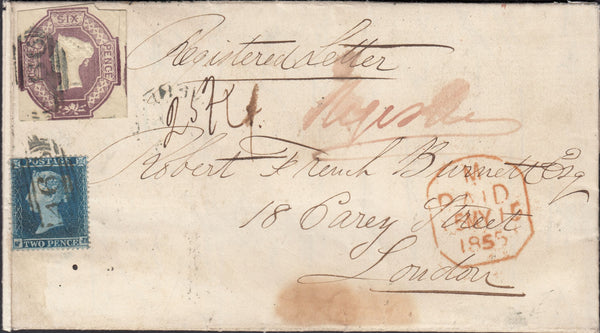 SIX PENCE
Registered Letter
Robert French Burnett Esq
18 Carey Street
London
POSTAGE
TWO PENCE
M
PAID
1855